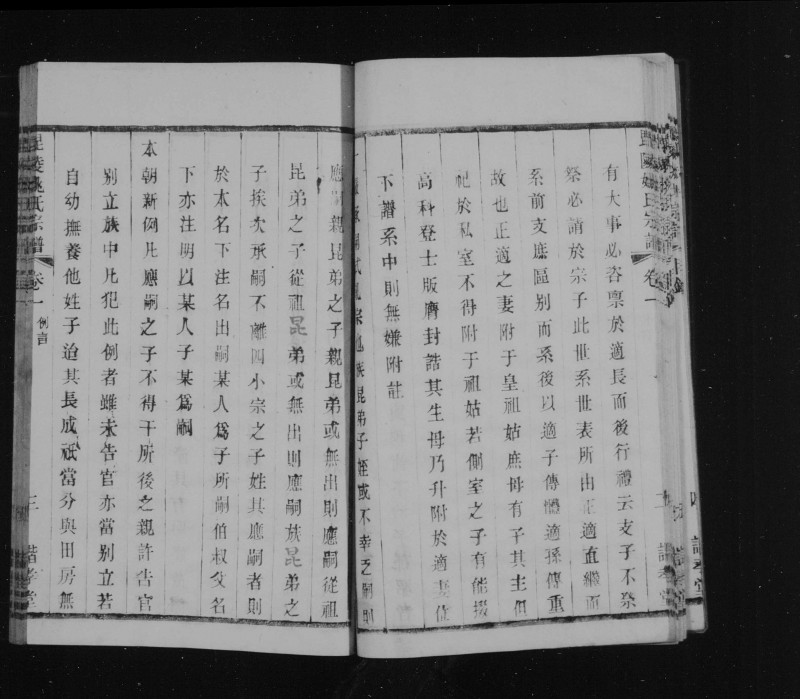 有大事必咨禀於適長而後行禮云支子不祭
祭必請於宗子此世系世表所由正適直繼而
系前支庶區别而系後以適子傳體適孫傳重
故也正適之妻附于皇祖姑庶母有子其主但
祀於私室不得附于祖姑若側室之子有能掇
高科登士版膺封誥其生母乃升附於適妻位
下譜系中則無嫌附註
宗 族昆弟子姪或不幸乏嗣則
應嗣親昆弟之子親昆弟或無出則應嗣從祖
昆弟之子從祖昆弟或無出則應嗣族昆弟之
子挨次承嗣不離四小宗之子姓其應嗣者則
於本名下注名出嗣某人爲子所嗣伯叔父名
下亦注明以某人子某爲嗣
本朝新例凡應嗣之子不得于所後之親許告官
别立族中凡犯此例者雖未告官亦當别立若
自幼撫養他姓子迨其長成祇當分與田房無
毘陵姚氏宗譜 卷一 例言 三 諧孝堂